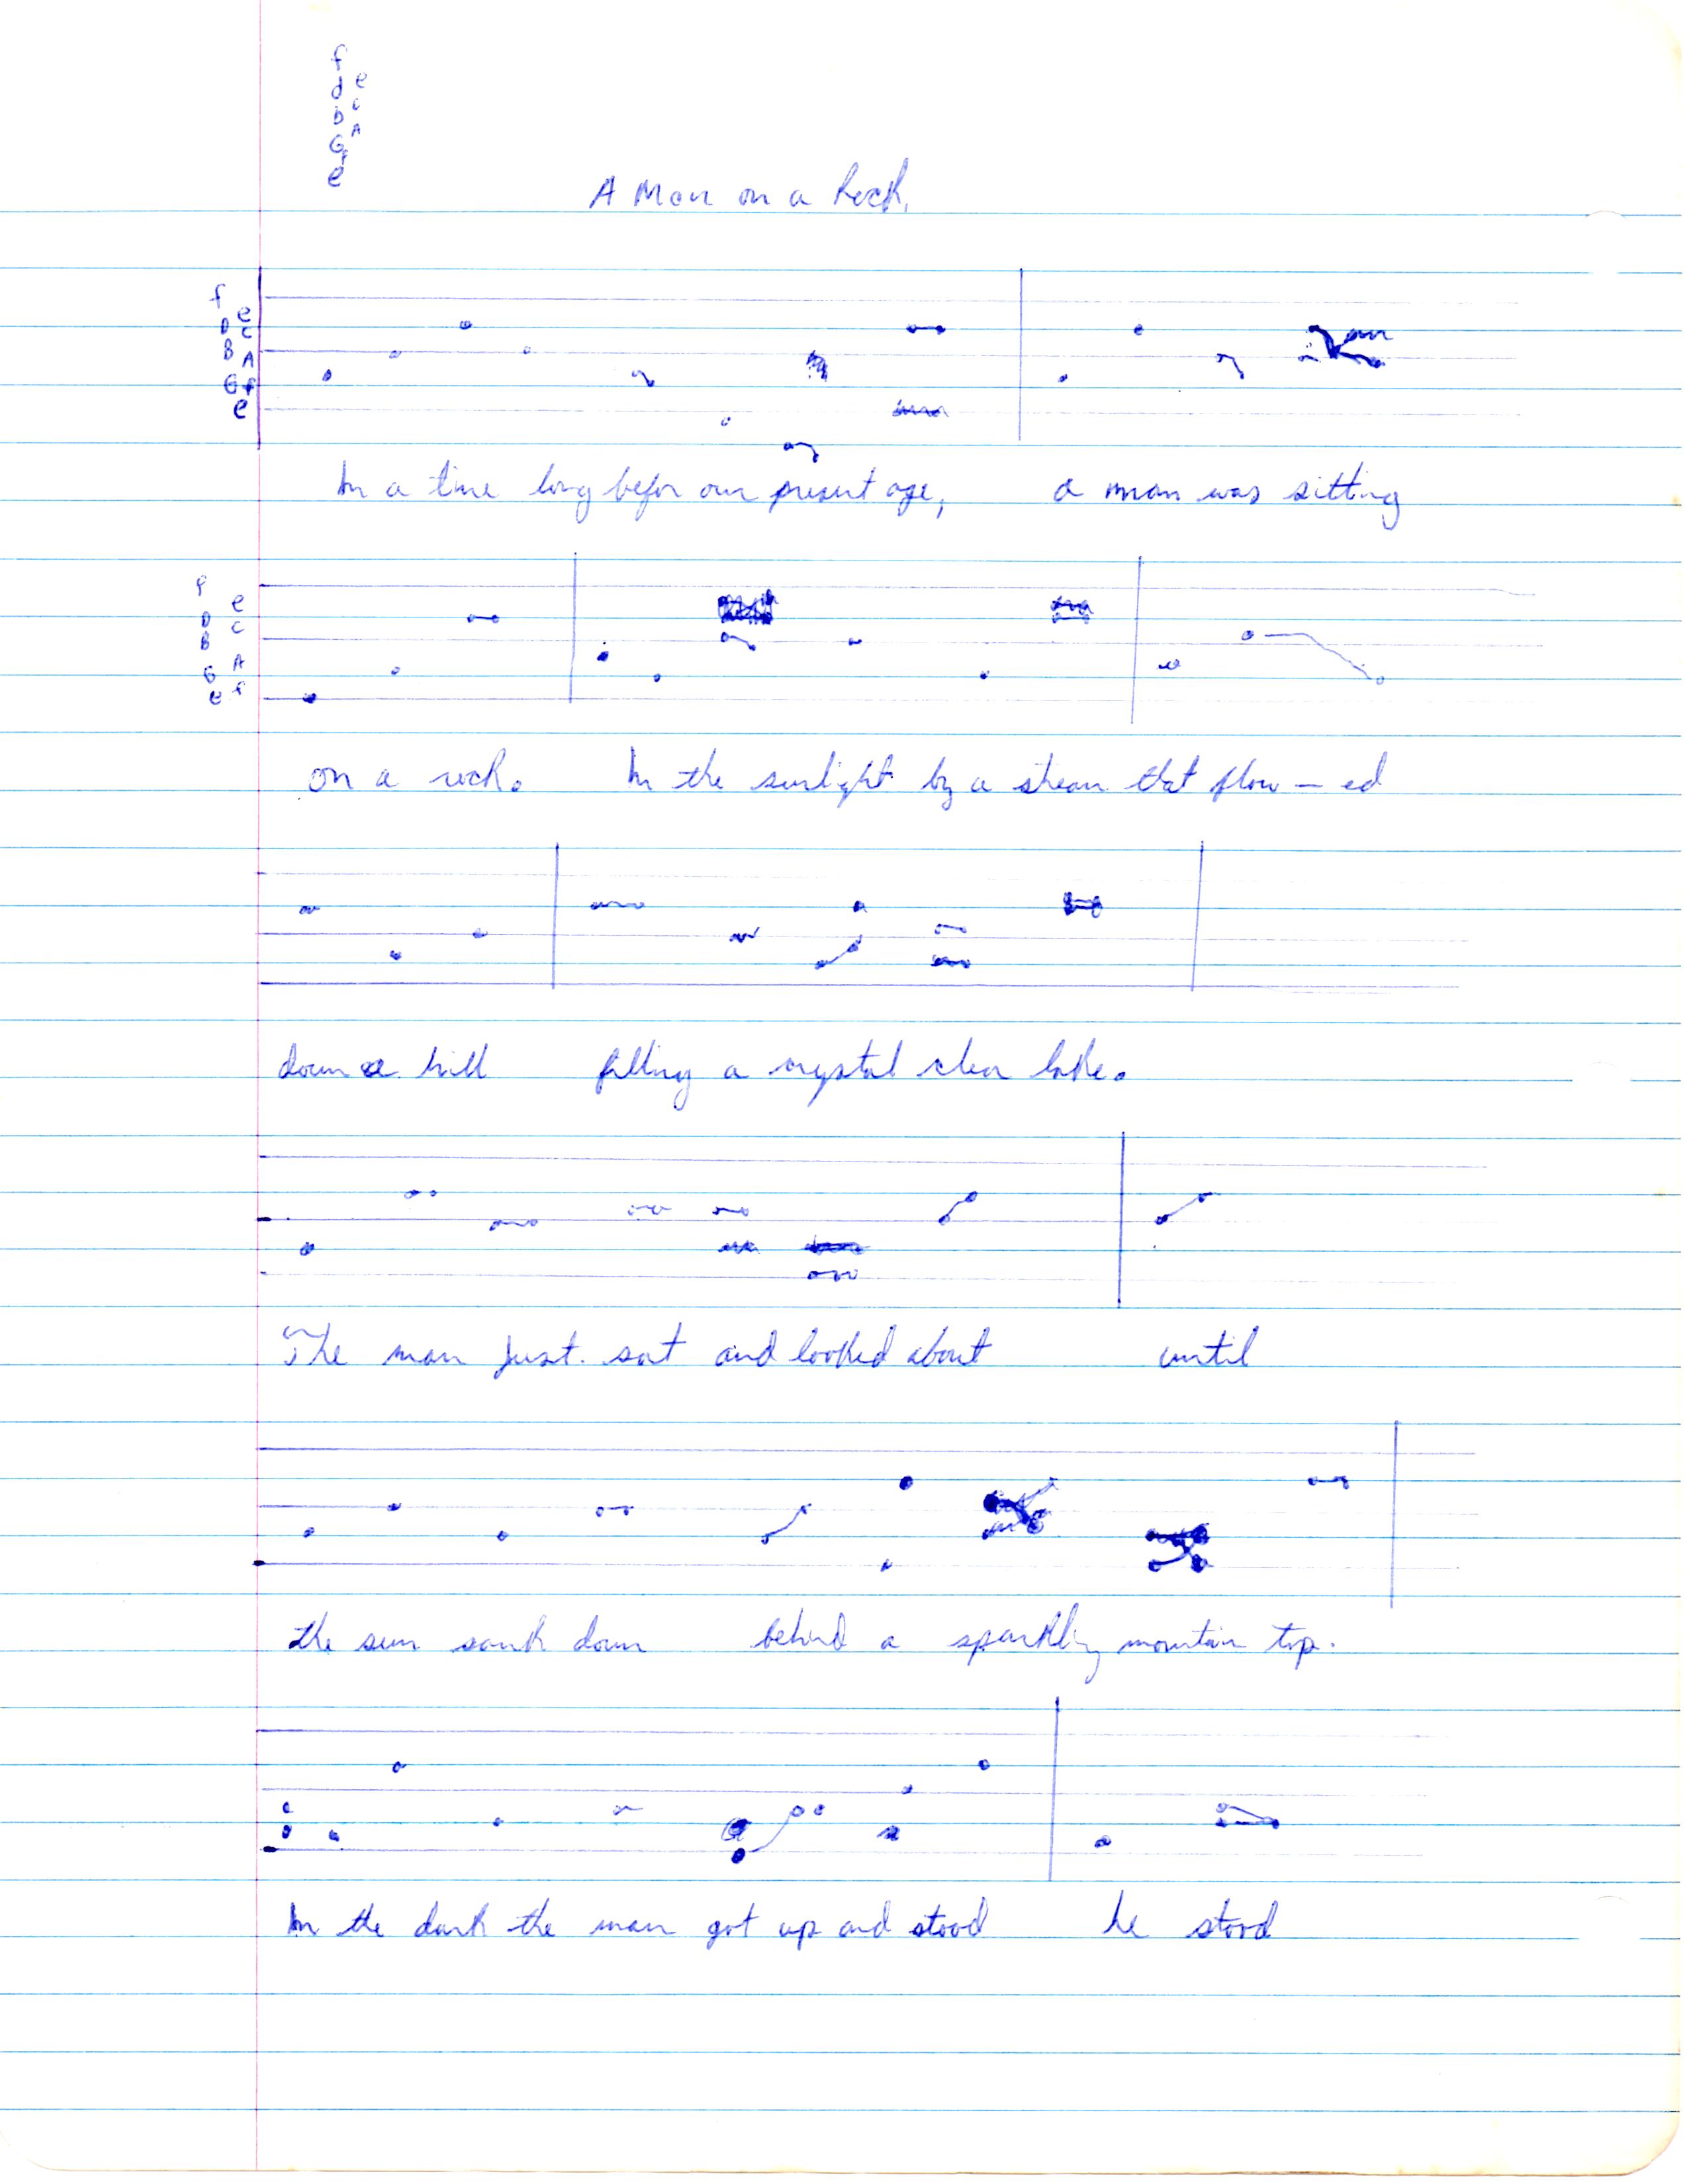 f
d e
b c
G A
e f
A Man on a Rock.
f
e
D C
B A
G f
e
In a time long befor our present age, a man was sitting
f
e
D C
B
G A
e f
on a rock. In the sunlight by a stream that flow - ed
down a hill filling a crystal clear lake.
The man just sat and looked about until
the sun sank down behind a sparkling mountain top.
In the dark the man got up and stood he stood